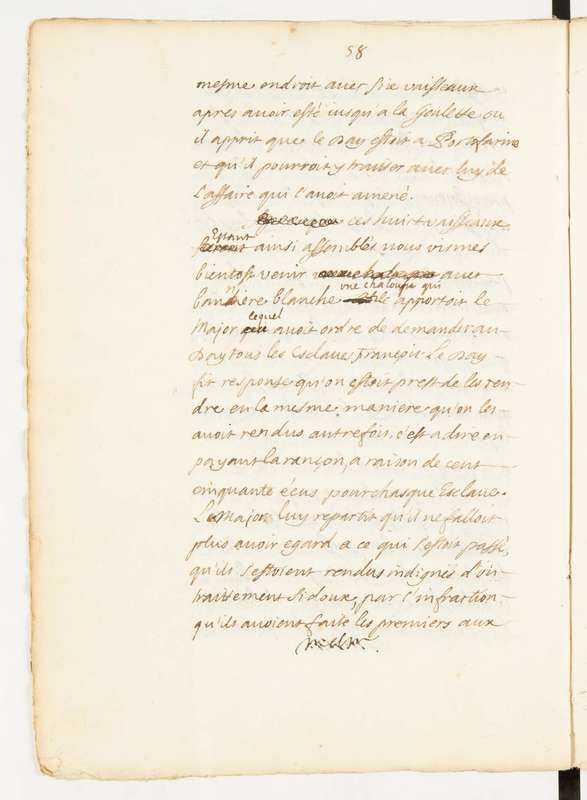 58
mesme endroit avec six vaisseaux
apres avoir esté iusqu'a la Goulette ou
il apprit que le Day estoit a Portofarine
et qu'il pourroit y traiter avec luy de
l'affaire qui l'avoit amené.
ces huict vaisseaux
Estant ainsi assemblés nous vismes
bientost venir avec
vne chaloupe qui
banniere blanche apportoit le
lequel
Major avoit ordre de demander au
Day tous les Esclaves françois. Le Day
fit response qu'on estoit prest de les ren-
dre en la mesme maniere qu'on les
avoit rendus autrefois, c'est adire en
payant la rançon, a raison de cent
cinquante écus pour chasque Esclave.
Le Major luy repartit qu'il ne falloit
plus avoir egard a ce qui s'estoit passé,
qu'ils s'estoient rendus indignes d'un
traittement si doux, par l'infraction
qu'ils avoient faite les premiers aux